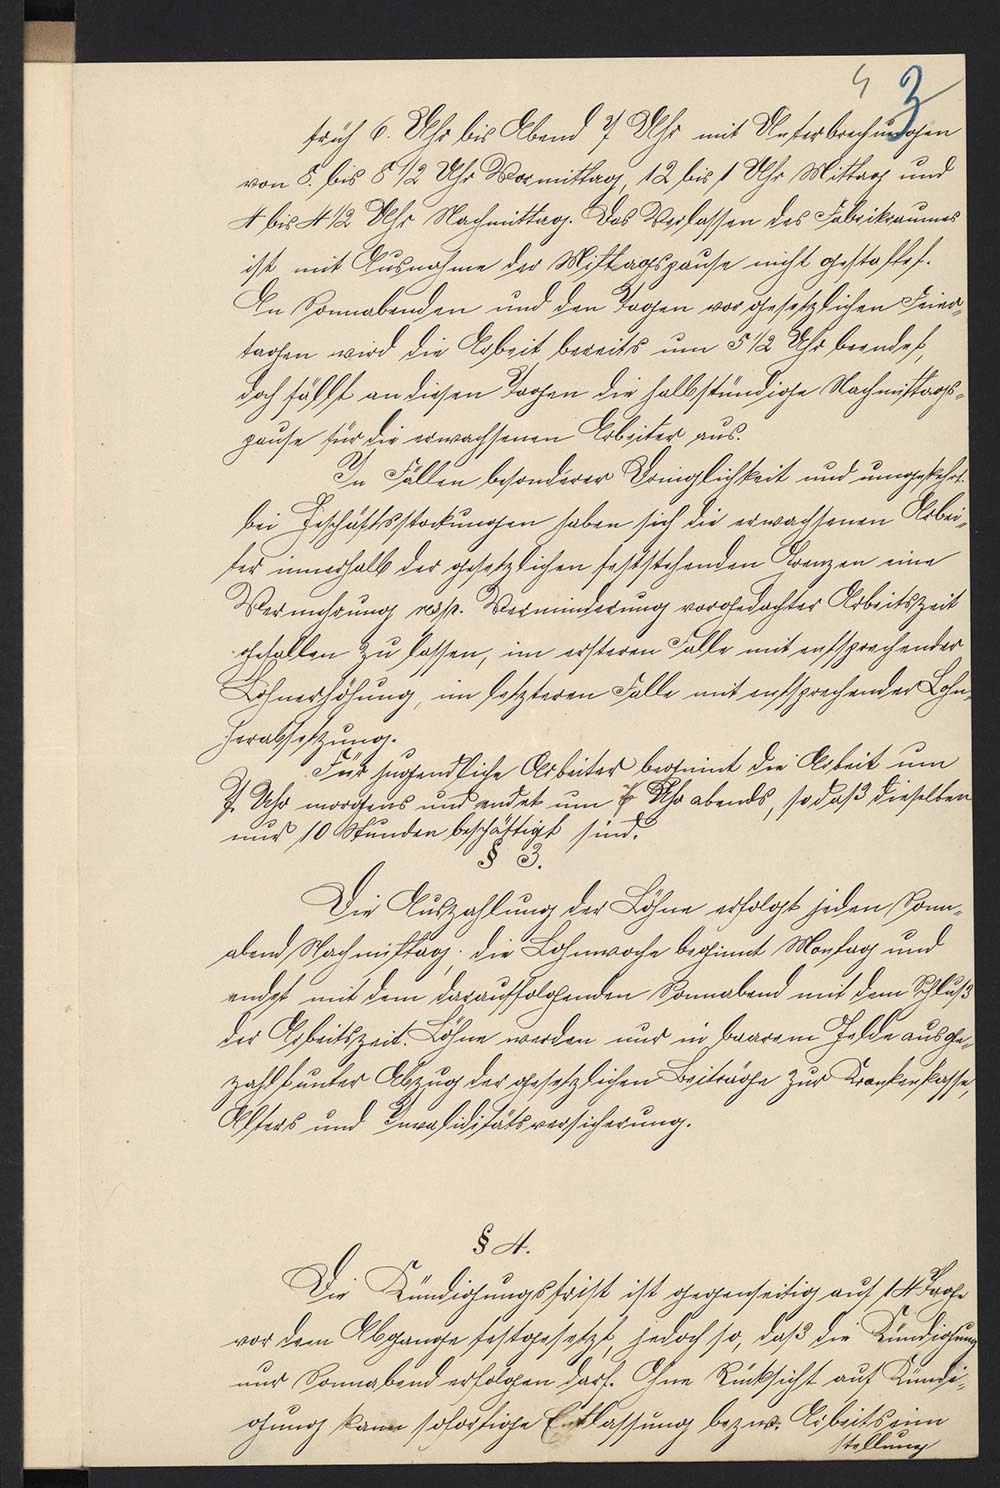 4 3
früh 6. Uhr bis Abend 7 Uhr mit Unterbrechungen
von 8. bis 8 1/2 Uhr Vormittag, 12 bis 1 Uhr Mittag und
4 bis 4 1/2 Uhr Nachmittag. Das Verlassen des Fabrikraumes
ist mit Ausnahme der Mittagspause nicht gestattet.
An Sonnabenden und den Tagen vor gesetzlichen Feier-
tagen wird die Arbeit bereits um 5 1/2 Uhr beendet,
doch fällt an diesen Tagen die halbstündige Nachmittags-
pause für die erwachsenen Arbeiter aus.
In Fällen besonderer Dringlichkeit und umgekehrt
bei Geschäftsstockungen haben sich die erwachsenen Arbei-
ter innerhalb der gesetzlichen feststehenden Grenzen eine
Vermehrung resp. Verminderung vorgedachter Arbeitszeit
gefallen zu lassen, im ersteren Falle mit entsprechender
Lohnerhöhung, im letzteren Falle mit entsprechender Lohn-
herabsetzung.
Für jugendliche Arbeiter beginnt die Arbeit um
7 Uhr morgens und endet um 7 Uhr abends, so daß dieselben
nur 10 Stunden beschäftigt sind.
§ 3.
Die Auszahlung der Löhne erfolgt jeden Sonn-
abend Nachmittag. die Lohnwoche beginnt Montag und
endet mit dem darauffolgenden Sonnabend mit dem Schluß
der Arbeitszeit. Löhne werden nur in baarem Gelde ausge-
zahlt unter Abzug der gesetzlichen Beiträge zur Krankenkasse,
Alters und Invaliditätsversicherung.
§ 4.
Die Kündigungsfrist ist gegenseitig auf 14 Tage
vor dem Abgange festgesetzt, jedoch so, daß die Kündigung
nur Sonnabend erfolgen darf. Ohne Rücksicht auf Kündi-
gung kann sofortige Entlassung bezw. Arbeitsein
stellung